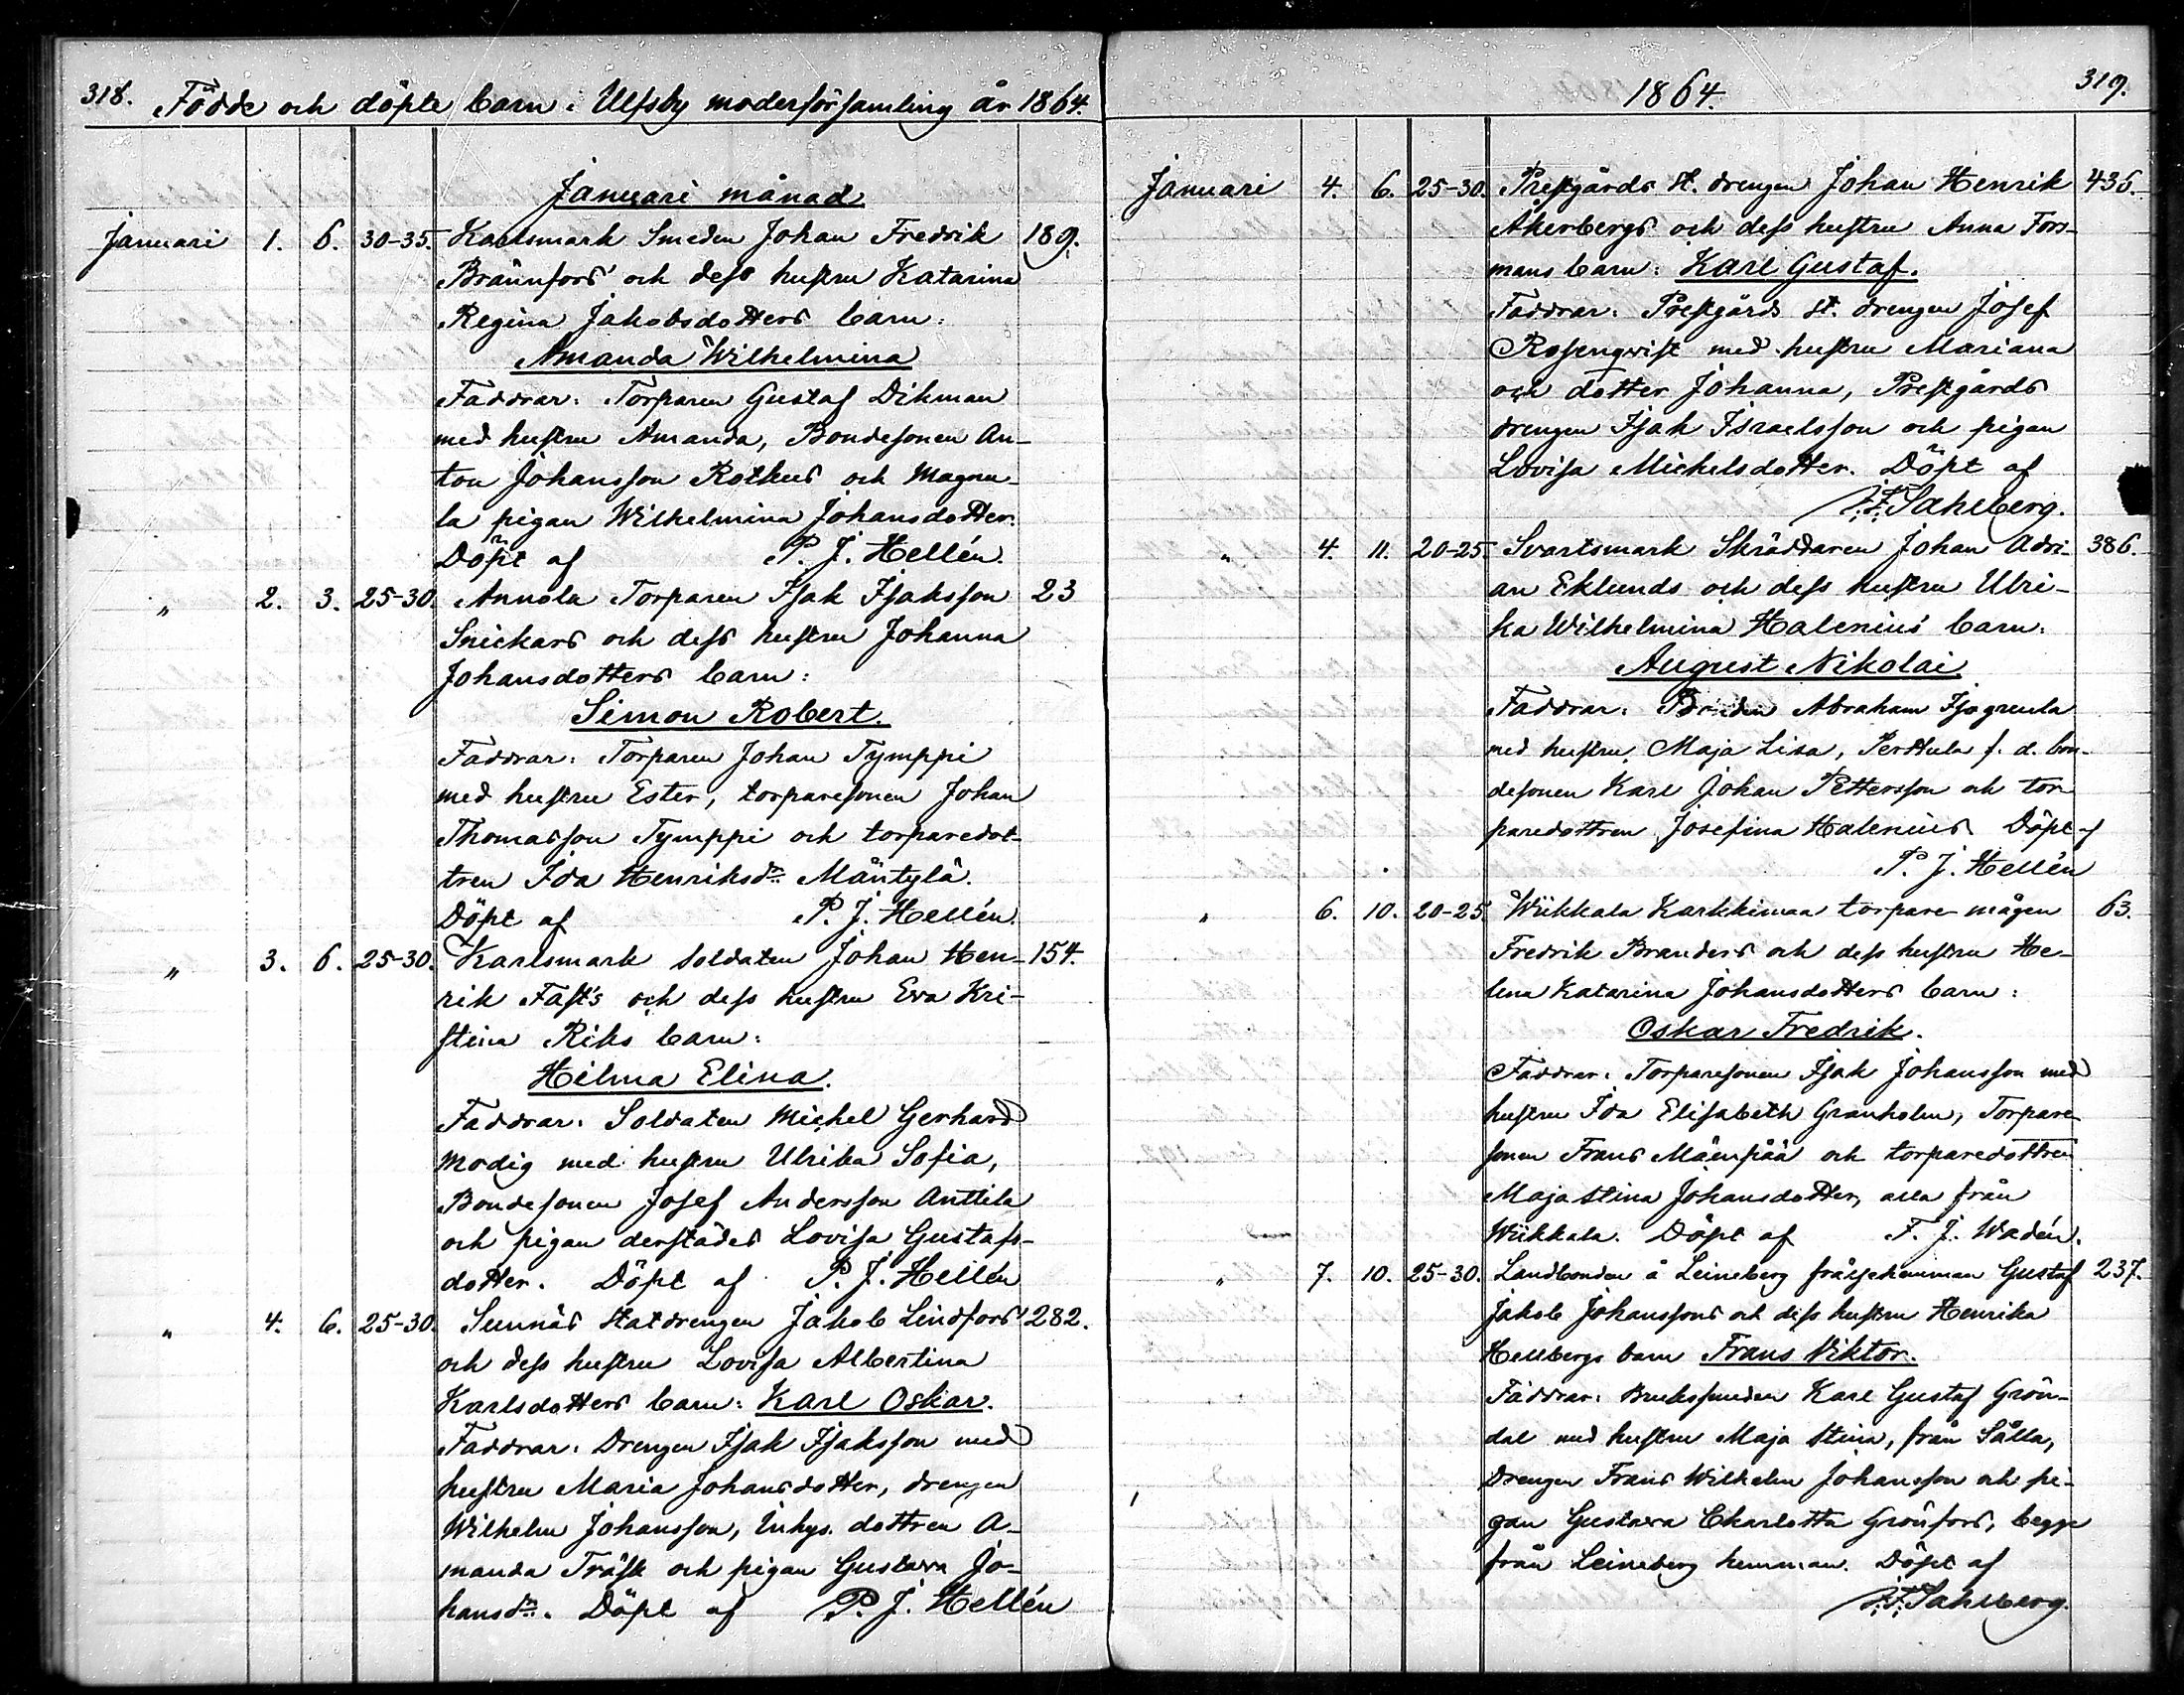 318. Födde och döpte barn i Ulfsby moderförsamling år 1864.
Januari månad
Januari 1. 6. 30-35. Karlsmark Smeden Johan Fredrik 189.
Brännfors' och dess hustru Katarina
Regina Jakobsdotters barn:
Amanda Wilhelmina
Faddrar: Torparen Gustaf Dikman
med hustru Amanda, Bondesonen An-
ton Johansson Rothus och Magnu-
la pigan Wilhelmina Johansdotter.
Döpt af P. J. Hellén.
" 2. 3. 25-30. Annola Torparen Isak Isaksson 23
Snickars och dess hustru Johanna
Johansdotters barn:
Simon Robert.
Faddrar: Torparen Johan Tymppi
med hustru Ester, torparesonen Johan
Thomasson Tymppi och torparedot-
tren Ida Henriksdr Mäntylä.
Döpt af P. J. Hellén.
" 3. 6. 25-30. Karlsmark soldaten Johan Hen- 154.
rik Fast's och dess hustru Eva Kri-
stina Riks barn:
Hilma Elina.
Faddrar: Soldaten Michel Gerhard
Modig med hustru Ulrika Sofia,
Bondesonen Josef Andersson Anttila
och pigan derstädes Lovisa Gustafs-
dotter. Döpt af P. J. Hellén
" 4. 6. 25-30. Sunnäs statdrengen Jakob Lindfors' 282.
och dess hustru Lovisa Albertina
Karlsdotters barn: Karl Oskar.
Faddrar: Drengen Isak Isaksson med
hustru Maria Johansdotter, drengen
Wilhelm Johansson, Inhys. dottren A-
manda Träsk och pigan Gustava Jo-
hansdr. Döpt af P. J. Hellén
1864. 319.
Januari 4. 6. 25-30. Prestgårds st. drengen Johan Henrik 436.
Åkerbergs och dess hustru Anna Fors-
mans barn: Karl Gustaf.
Faddrar: Prestgårds st. drengen Josef
Rosenqvist med hustru Mariana
och dotter Johanna, Prestgårds
drengen Isak Israelsson och pigan
Lovisa Michelsdotter. Döpt af
Sahlberg.
" 4. 11. 20-25. Svartsmark Skräddaren Johan Adri- 386.
an Eklunds och dess hustru Ulri-
ka Wilhelmina Halenius' barn:
August Nikolai.
Faddrar: Bonden Abraham
med hustru Maja Lisa, Perttula f. d. bon-
desonen Karl Johan Pettersson och tor-
paredottren Josefina Halenius. Döpt af
P. J. Hellén
" 6. 10. 20-25. Wiikkala Karkkimaa torpare mågen 63.
Fredrik Branders och dess hustru He-
lena Katarina Johansdotters barn:
Oskar Fredrik.
Faddrar: Torparesonen Isak Johansson med
hustru Ida Elisabeth Granholm, Torpare-
sonen Frans Mäenpää och torparedottren
Maja Stina Johansdotter, alla från
Wiikkala. Döpt af F. J. Wadén.
" 7. 10. 25-30. Landbonden å Leineberg frälsehemman Gustaf 237.
Jakob Johanssons och dess hustru Henrika
Hellbergs barn Frans Viktor.
Faddrar: Brukssmeden Karl Gustaf Grön-
dal med hustru Maja Stina, från Sålla,
Drengen Frans Wilhelm Johansson och pi-
gan Gustava Charlotta Grönfors, begge
från Leineberg hemman. Döpt af
Sahlberg.